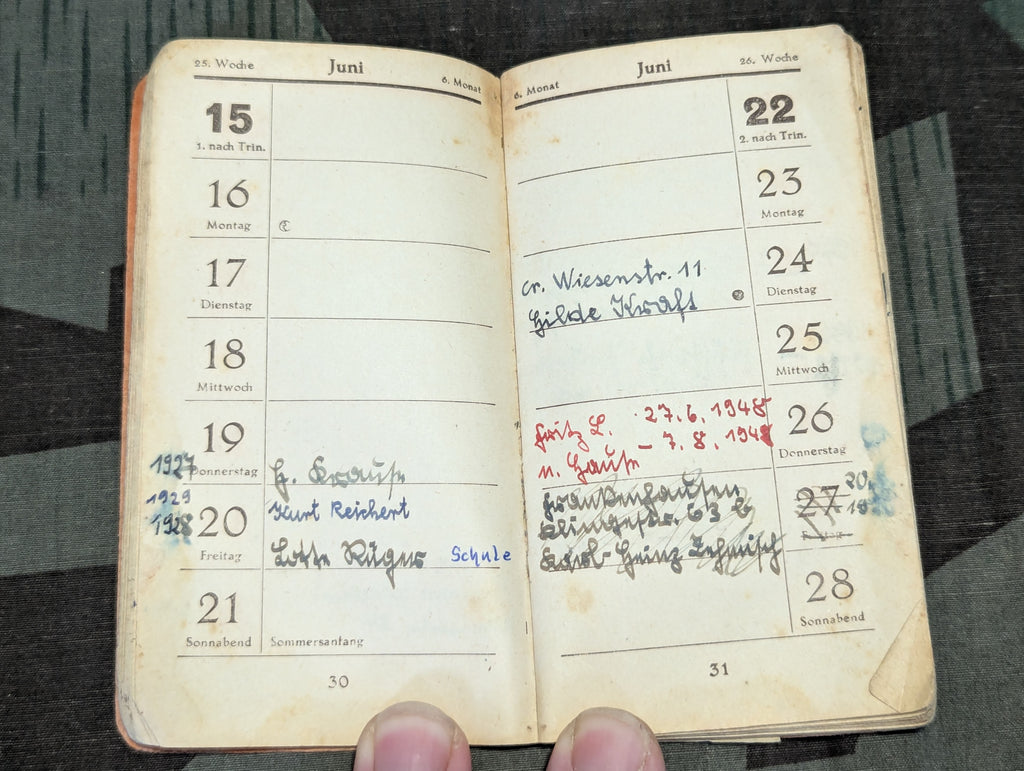 25. Woche Juni 6. Monat
15
1. nach Trin.
16
Montag
17
Dienstag
18
Mittwoch
19
Donnerstag
1927 H. Krause
1929 Kurt Reichert
20
1928 Lotte Rüger Schule
Freitag
21
Sonnabend Sommersanfang
30
6. Monat Juni 26. Woche
22
2. nach Trin.
23
Montag
24
cr. Wiesenstr. 11
Dienstag
Hilde Kraft
25
Mittwoch
26
Fritz L. 27.6.1948
n. Hause - 7.8.1948
Donnerstag
27
20.
Frankenhausen
Klingestr. 63 b
Karl-Heinz Lehnisch
28
Sonnabend
31